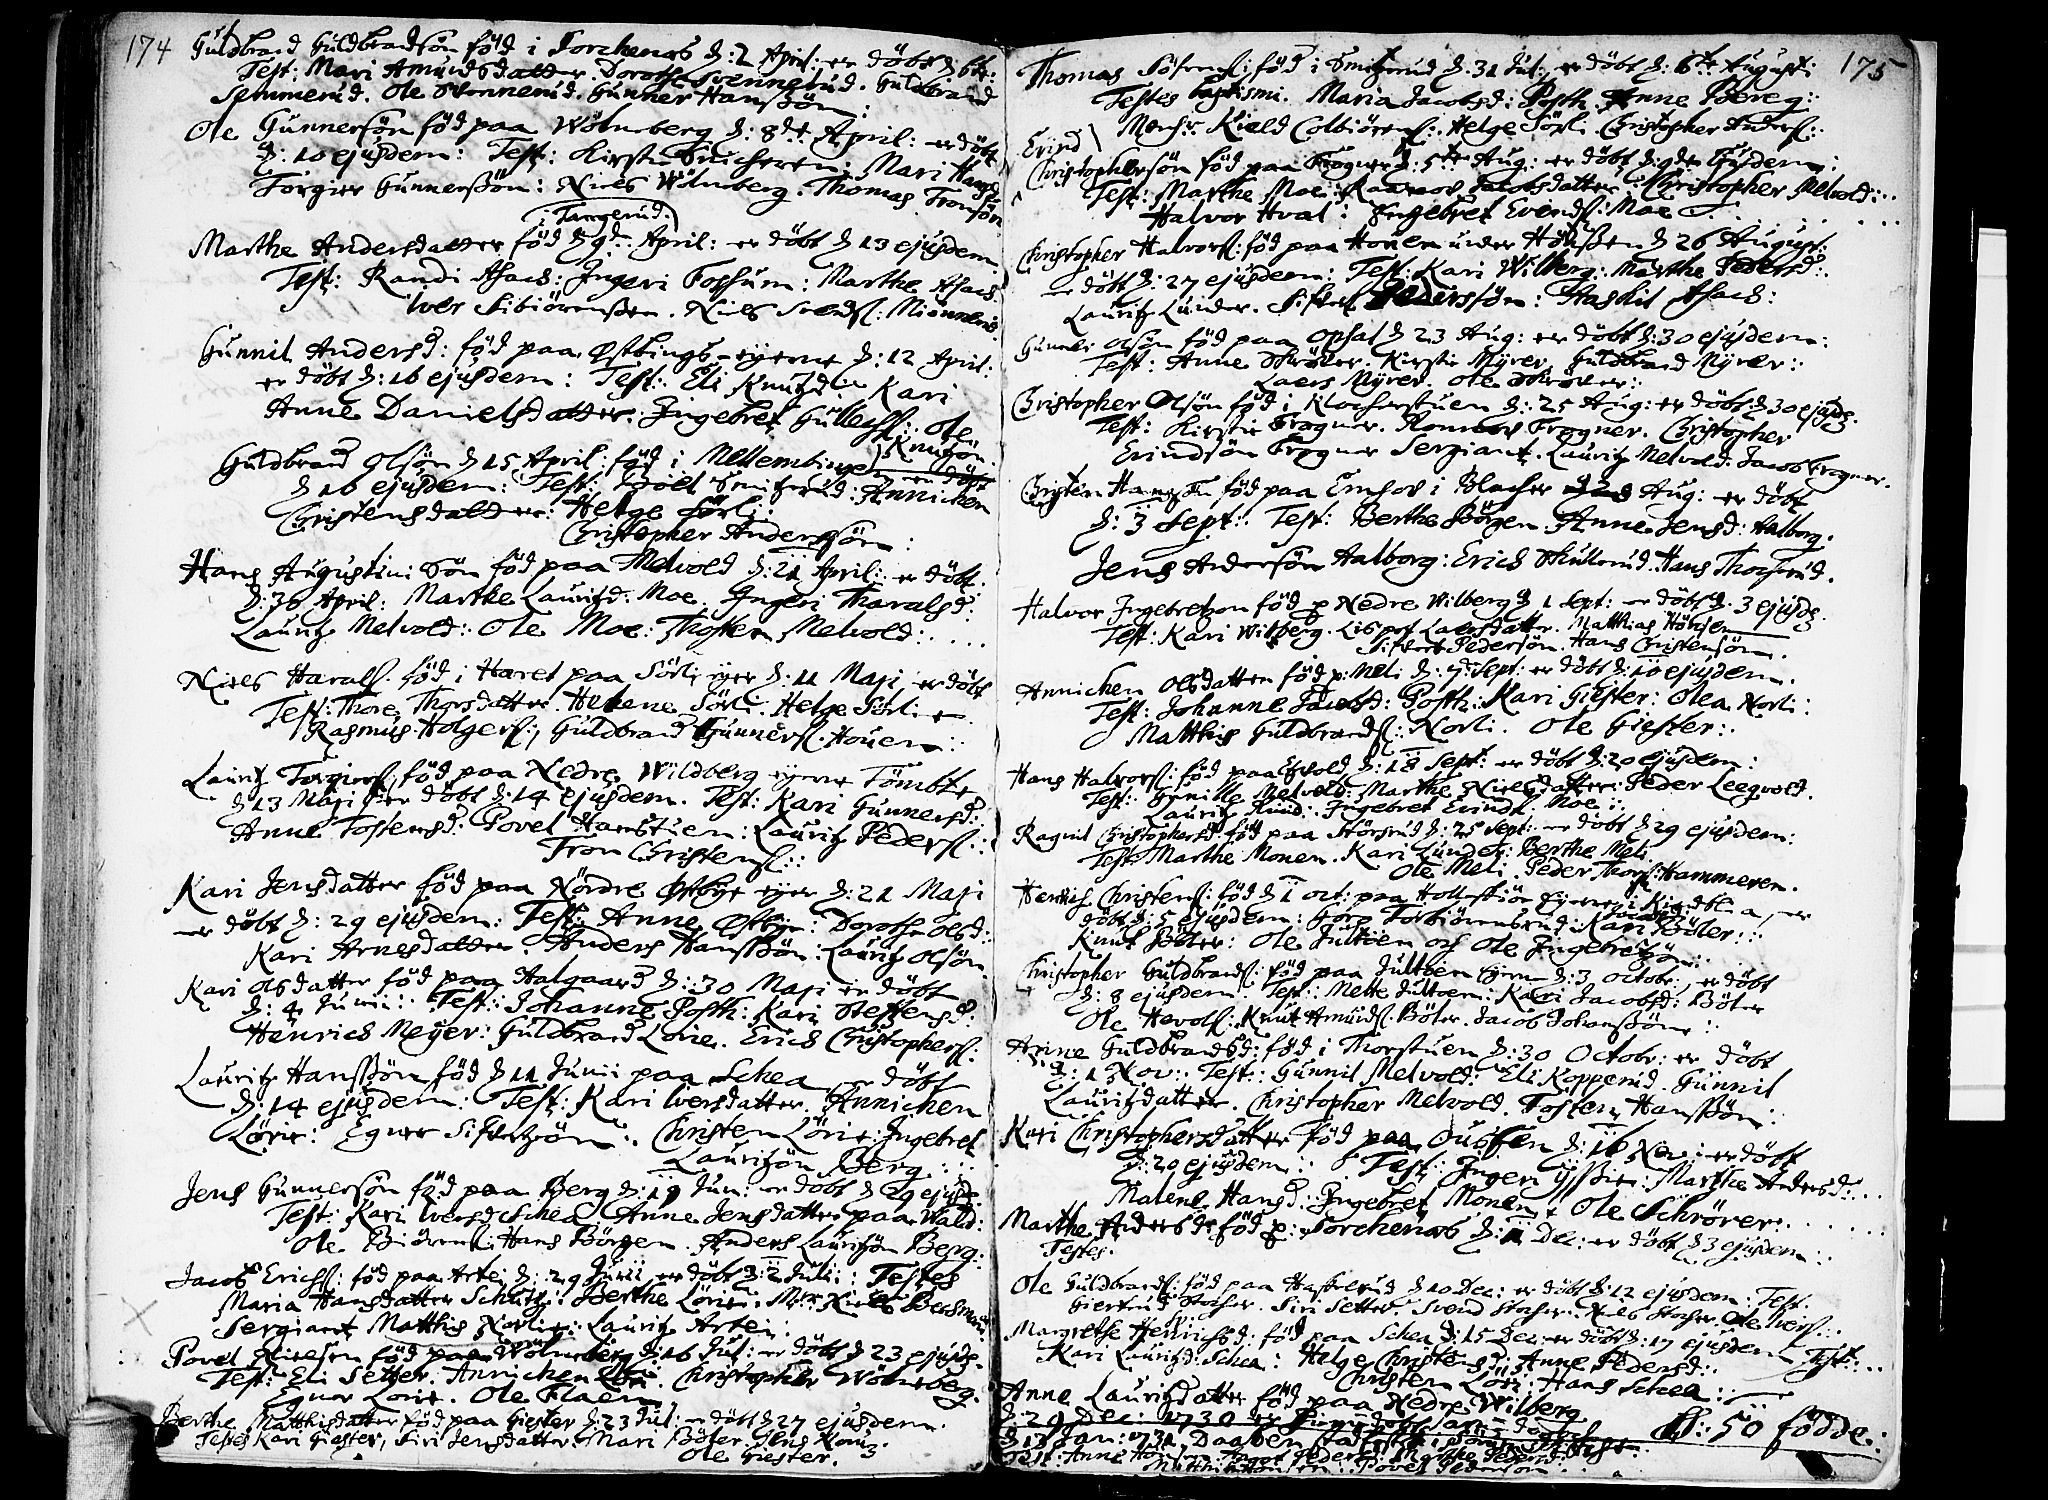 174
Guldbrand Guldbrandsön föd i Torchernæs d: 2 April: er döbt d 6te:
Test: Mari Amundsdatter. Dorothe Svennerud. Guldbrand
Semmerud. Ole Svennerud. Gunner Hansšön:
Ole Gunnersön föd paa Wölneberg d: 8de April: er döbt
d: 10 ejusdem: Test: Kirsti Mari Hansd
Torgier Gunnersšön: Niels Wölneberg. Thomas Tronsön
i Tangerud.
Marthe Andersdatter föd d 9de April: er döbt d 13 ejusdem
Test: Randi Asach: Jngeri Fossum: Marthe Asach
Iver Sibiörensšen. Niels Svends: Miönnerud
Gunnil Andersd: föd paa Østbings-ejerne d: 12 April:
er döbt d: 16 ejusdem: Test: Eli Knutzd: Kari
Anne Danielsdatter. Jngebret Gullechs: Ole
Knutzön.
Guldbrand Olsön d 15 April föd i Mellembinge er döbt
d 16 ejusdem: Test: Smitzrud: Annichen
Christensdatter: Helge Sörli:
Christopher Andersšön:
Hans Augustini Sön föd paa Melvold d: 21 April: er döbt
d: 30 April: Marthe Lauritzd: Moe. Jngeri Tharalsd:
Lauritz Melvold: Ole Moe: Thosten Melvold:
Niels Harals. föd i Haret paa Sörli ejer d: 11 Maji er döbt
Test: Thore Thorsdatter. Helene Sörli. Helge Sörli
Rasmus Holgers:, Guldbrand Gunners. Houen:
Lauritz Torgiers, föd paa Nedre Wildberg ejerne Tömbte
d 13 Maji er döbt d: 14 ejusdem. Test: Kari Gunnersd:
Anne Tostensd: Povel Hamstuen: Lauritz Peders:
Tron Christens:
Kari Jensdatter föd paa Nördre Østbye ejer d: 21 Maji
er döbt d: 29 ejusdem: Test: Anne Østbye: Dorothe Olsd:
Kari Arnesdatter. Anders Hansšön: Lauritz Olsön
Kari Olsdatter föd paa Halgaard d: 30 Maji er döbt
d: 4 Junii: Test: Johanne Posth: Kari Steffensd:
Henrich Meyer: Guldbrand Lörie. Erich Christophers:
Lauritz Hansšön föd d 11 Junii paa Schea er döbt
d: 14 ejusdem: Test: Kari Iversdatter. Annichen
Lörie: Egner Siffertzön: Christen Lörie: Jngebret
Lauritzön Berg:
Jens Gunnersön föd paa Berg d: 19 Jun: er döbt d 29 ejusd
Test: Kari Iversd Schea Anne Jensdatter paa Wald:
Ole Biörens: Hans Börgen. Anders Lauritzön Berg:
Jacob Erichs: föd paa Artei d: 29 Junii er döbt d: 2 Julii: Testes
Maria Hansdatter Schütz: Berthe Lörie: Mr Niels Bechman
Sergiant Matthis Norlie: Lauritz Artei:
Povel Nielsen föd paa Wölneberg d: 16 Jul: er döbt d 23 ejusd
Test: Eli Setter. Annichen Lörie. Christopher Wölneberg.
Egner Lörie. Ole Flaen
Berthe Matthisdatter föd paa Giester d: 23 Jul: er döbt d 27 ejusdem.
Testes Kari Giester, Siri Jensdatter. Mari Böler. Jens
Ole Giester.
175
Thomas Sörens: föd i Smitzrud d 31 Jul:, er döbt d: 6te Augusti
Testes Baptismi. Maria Jacobsd: Posth. Anne Bereg:
Monsr Kield Colbiörens: Helge Sörli Christopher Anders:
Evind
Christophersön föd paa Frogner d: 5te Aug: er döbt d 9de Ejusdem:
Test: Marthe Moe: Jacobsdatter: Christopher Melvold:
Halvor Hval: Jngebret Evends: Moe
Christopher Halvors: föd paa Houen under Höhšen d 26 August:
er döbt d: 27 ejusdem: Test: Kari Wilberg: Marthe Pedersd:
Lauritz Lunder. Siffert Pedersšön: Haskil Asach:
Gunner Olsön föd paa Opsal d 23 Aug: er döbt d: 30 ejusdem:
Test: Anne Schröver. Kirstie Myrer. Guldbrand Myrer:
Laers Myrer. Ole Schröver:
Christopher Olsön föd i Klocherstuen d: 25 Aug: er döbt d 30 ejusd.
Test: Kirstie Frogner. Frogner. Christopher
Evindsön Frogner Sergiant. Lauritz Melvold. Jacob Frogner.
Christen Hansšön föd paa Emhov i Blacher Aug: er döbt
d: 3 Sept: Test: Berthe Börgen Anne Jensd: Aalborg.
Jens Andersön Aalborg: Erich Skullerud. Hans Thochrud.
Halvor Jngebretzon föd p Nedre Wilberg d 1 Sept: er döbt d. 3 ejusd.
Test: Kari Wilberg. Lisp Laersdatter. Matthias Höhsen
Siffert Pedersön. Hans Christensön.
Annichen Olsdatter föd p: Meli d: 7de Sept: er döbt d: 10 ejusdem.
Test: Johanne Jacobsd: Posth: Kari Giester: Olea Norli:
Matthis Guldbrands: Norli. Ole Giester:
Hans Halvors: föd paa d: 18 Sept: er döbt d: 20 ejusdem:
Test: Gunille Melvold: Marthe Nielsdatter: Peder Leegvold.
Lauritz Jngebret Evinds Moe:
Ragnil Christophersd: föd paa Störsrud d: 25 Sept: er döbt d 29 ejusdem:
Test: Marthe Monen. Kari Lunder: Berthe Meli
Ole Meli. Peder Thors: Hammeren.
Henrich Christens: föd d 1 Oct: paa ejerne i er
döbt d: 5 ejusdem: Gorp Kari Böler:
Knut Böler: Ole Jultoen och Ole Jngebretzön:
Christopher Guldbrands: föd paa Jultoen ejern d: 3 Octobr:, er döbt
d: 8 ejusdem: Test: Mette Jultoen: Kari Jacobsd: Böler
Ole Hevols: Knut Amunds: Böler. Jacob Johansšön:
Anne Guldbrandsd: föd i Thorstuen d: 30 Octobr: er döbt
d: 1 Nov: Test: Gunnil Melvold: Eli Kopperud. Gunnil
Lauritzdatter. Christopher Melvold. Tosten Hansšön:
Kari Christophersdatter föd paa d: 16 Nov: er döbt
d: 20 ejusdem: Test: Jngeri Marthe Andersd:
Malene Hansd: Jngebret Monen. Ole Schröver:
Marthe Andersdr föd p: Torchernæs d: 1 Dec: er döbt d 3 ejusdem:
Testes.
Ole Guldbrands: föd paa Haskerud d 10 Dec: er döbt d: 12 ejusdem: Test.
Giertrud Stocher. Siri Setter: Svend Stocher. Niels Stocher. Ole Ivers:
Margrethe Henrichsd: föd paa Schea d: 15 Dec: er döbt d: 17 ejusdem Test:
Kari Lauritzd: Schea: Helge Christensd: Anne Pedersd:
Christen Löri: Hans Schea:
Anne Lauritzdatter föd paa Nedre Wilberg
d: 29 Dec: 1730 er
d 1 Jan: 1731 Daaben
Test: Anne
Povel Pedersön
Ad: 50 födde.